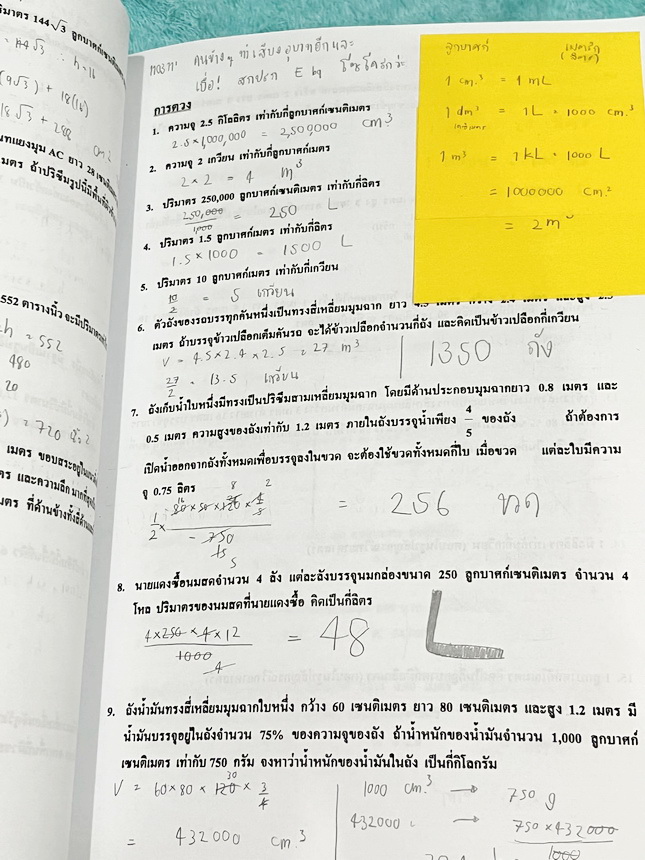 ปริมาตร 144√3 ลูกบาศก์เซน
(9√3) + 18(16)
18√3 + 288
ทแยงมุม AC ยาว 28 เซนติเมตร
เมตร ถ้าปริซึมรูปนี้มีพื้นที่ผิวข้าง
552 ตารางนิ้ว จะมีปริมาตร
h = 552
480
20
= 720
เมตร ขอบสระอยู่ใน
ตร และความลึกมากที่สุด
เมตร ที่ด้านข้างทั้งสี่ด้าน
ลูกบาศก์
1 cm.³ = 1 mL
1 dm³ = 1L = 1000 cm³
1 m³ = 1 kL = 1000 L
= 1000000 cm.²
= 2 m³
การตวง
1. ความจุ 2.5 กิโลลิตร เท่ากับกี่ลูกบาศก์เซนติเมตร
2.5 × 1,000,000 = 2,500,000 cm³
2. ความจุ 2 เกวียน เท่ากับกี่ลูกบาศก์เมตร
2 × 2 = 4 m³
3. ปริมาตร 250,000 ลูกบาศก์เซนติเมตร เท่ากับกี่ลิตร
250,000/1,000 = 250 L
4. ปริมาตร 1.5 ลูกบาศก์เมตร เท่ากับกี่ลิตร
1.5 × 1000 = 1500 L
5. ปริมาตร 10 ลูกบาศก์เมตร เท่ากับกี่เกวียน
10/2 = 5 เกวียน
6. ตัวถังของรถบรรทุกคันหนึ่งเป็นทรงสี่เหลี่ยมมุมฉาก ยาว 4.5 เมตร กว้าง 2.4 เมตร และสูง 2.5
เมตร ถ้าบรรจุข้าวเปลือกเต็มคันรถ จะได้ข้าวเปลือกจำนวนกี่ถัง และคิดเป็นข้าวเปลือกกี่เกวียน
V = 4.5 × 2.4 × 2.5 = 27 m³
27/2 = 13.5 เกวียน
1350 ถัง
7. ถังเก็บน้ำใบหนึ่งมีทรงเป็นปริซึมสามเหลี่ยมมุมฉาก โดยมีด้านประกอบมุมฉากยาว 0.8 เมตร และ
0.5 เมตร ความสูงของถังเท่ากับ 1.2 เมตร ภายในถังบรรจุน้ำเพียง 4/5 ของถัง ถ้าต้องการ
เปิดน้ำออกจากถังทั้งหมดเพื่อบรรจุลงในขวด จะต้องใช้ขวดทั้งหมดกี่ใบ เมื่อขวด แต่ละใบมีความ
จุ 0.75 ลิตร
= 256 ขวด
8. นายแดงซื้อนมสดจำนวน 4 ลัง แต่ละลังบรรจุนมกล่องขนาด 250 ลูกบาศก์เซนติเมตร จำนวน 4
โหล ปริมาตรของนมสดที่นายแดงซื้อ คิดเป็นกี่ลิตร
4 × 250 × 4 × 12 / 1000 = 48 L
4
9. ถังน้ำมันทรงสี่เหลี่ยมมุมฉากใบหนึ่ง กว้าง 60 เซนติเมตร ยาว 80 เซนติเมตร และสูง 1.2 เมตร มี
น้ำมันบรรจุอยู่ในถังจำนวน 75% ของความจุของถัง ถ้าน้ำหนักของน้ำมันจำนวน 1,000 ลูกบาศก์
เซนติเมตร เท่ากับ 750 กรัม จงหาว่าน้ำหนักของน้ำมันในถัง เป็นกี่กิโลกรัม
V = 60 × 80 × 120 × 3/4
30
= 432000 cm.³
1000 cm.³ → 750 g
432000 → 750 × 432000 / 1000